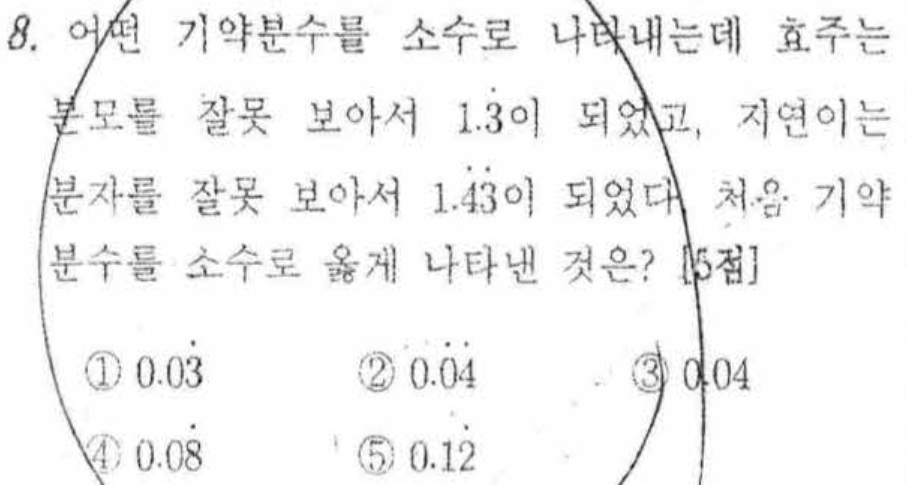 8. 어떤 기약분수를 소수로 나타내는데 효주는
분모를 잘못 보아서 1.3̇이 되었고, 지연이는
분자를 잘못 보아서 1.4̇3̇이 되었다. 처음 기약
분수를 소수로 옳게 나타낸 것은? [5점]
① 0.03̇ ② 0.0̇4̇ ③ 0.04
④ 0.08̇ ⑤ 0.12̇